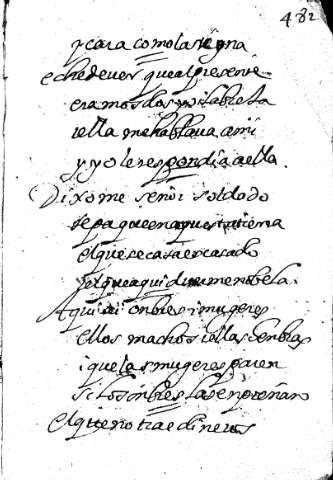 482
y cara como la Reyna
eche de ver que al presente
eramos dos y sola bela
iella me hablaua a mi
y yo le respondia a ella.
Dixome señor soldado
sepa que en aquesta tierra
el que se casa es casado
y el que aqui duerme no bela.
Aqui ai onbres i mugeres
ellos machos i ellas enbras
i que las mugeres paren
si los onbres las enpreñan
el que no trae dineros